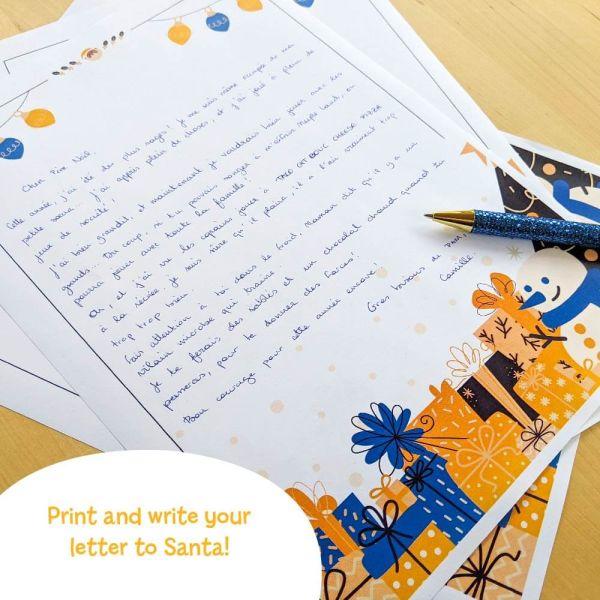 Cher Père Noël,
Cette année, j'ai été des plus sages ! Je me suis même occupée de ma
petite sœur... j'ai appris plein de choses, et j'ai joué à plein de
jeux de société !
J'ai bien grandi, et maintenant je voudrais bien jouer avec les
grands. Du coup, si tu pouvais songer à m'offrir Meeple Land, on
pourra jouer avec toute la famille !
Oh, et j'ai vu les copains jouer à TACO CAT BOUC CHEESE PIZZA
à la récrée, je suis sûre qu'il plaira, il a l'air vraiment trop
trop trop bien !
Fais attention à toi dans le froid, Maman dit qu'il y a un
vilain microbe qui traine.
Je te ferais des sablés et un chocolat chaud quand tu
passeras, pour te donner des forces !
Bon courage pour cette année encore !
Gros bisous de Dom,
Camille
Print and write your
letter to Santa!